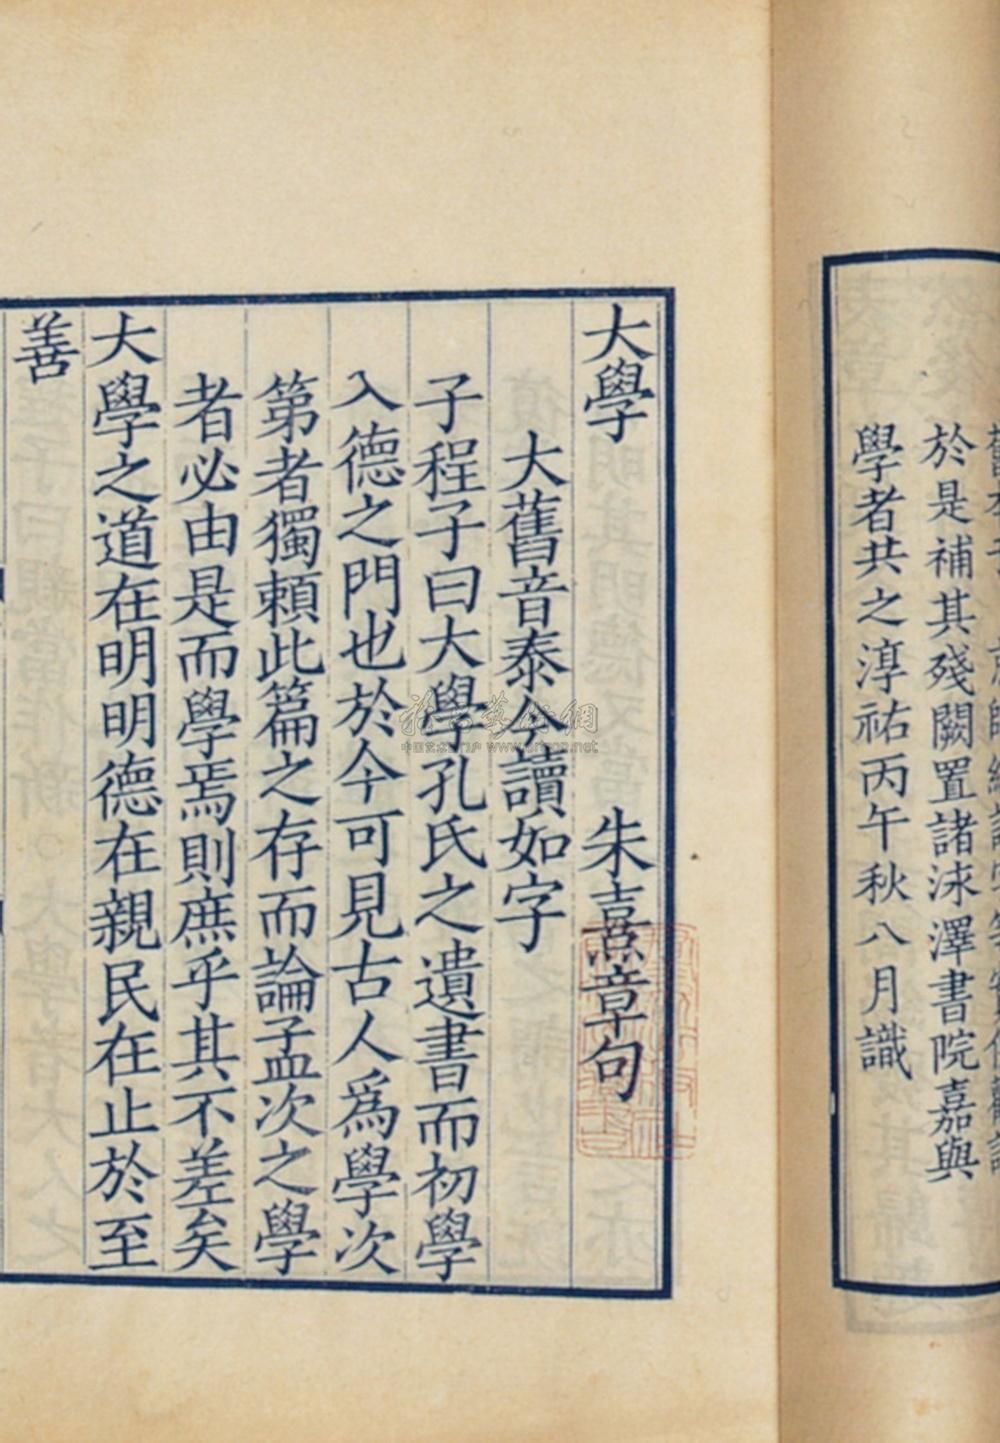 於是補其殘闕置諸泳澤書院嘉與
學者共之淳祐丙午秋八月識
大學 朱熹章句
大舊音泰今讀如字
子程子曰大學孔氏之遺書而初學
入德之門也於今可見古人爲學次
第者獨賴此篇之存而論孟次之學
者必由是而學焉則庶乎其不差矣
大學之道在明明德在親民在止於至
善